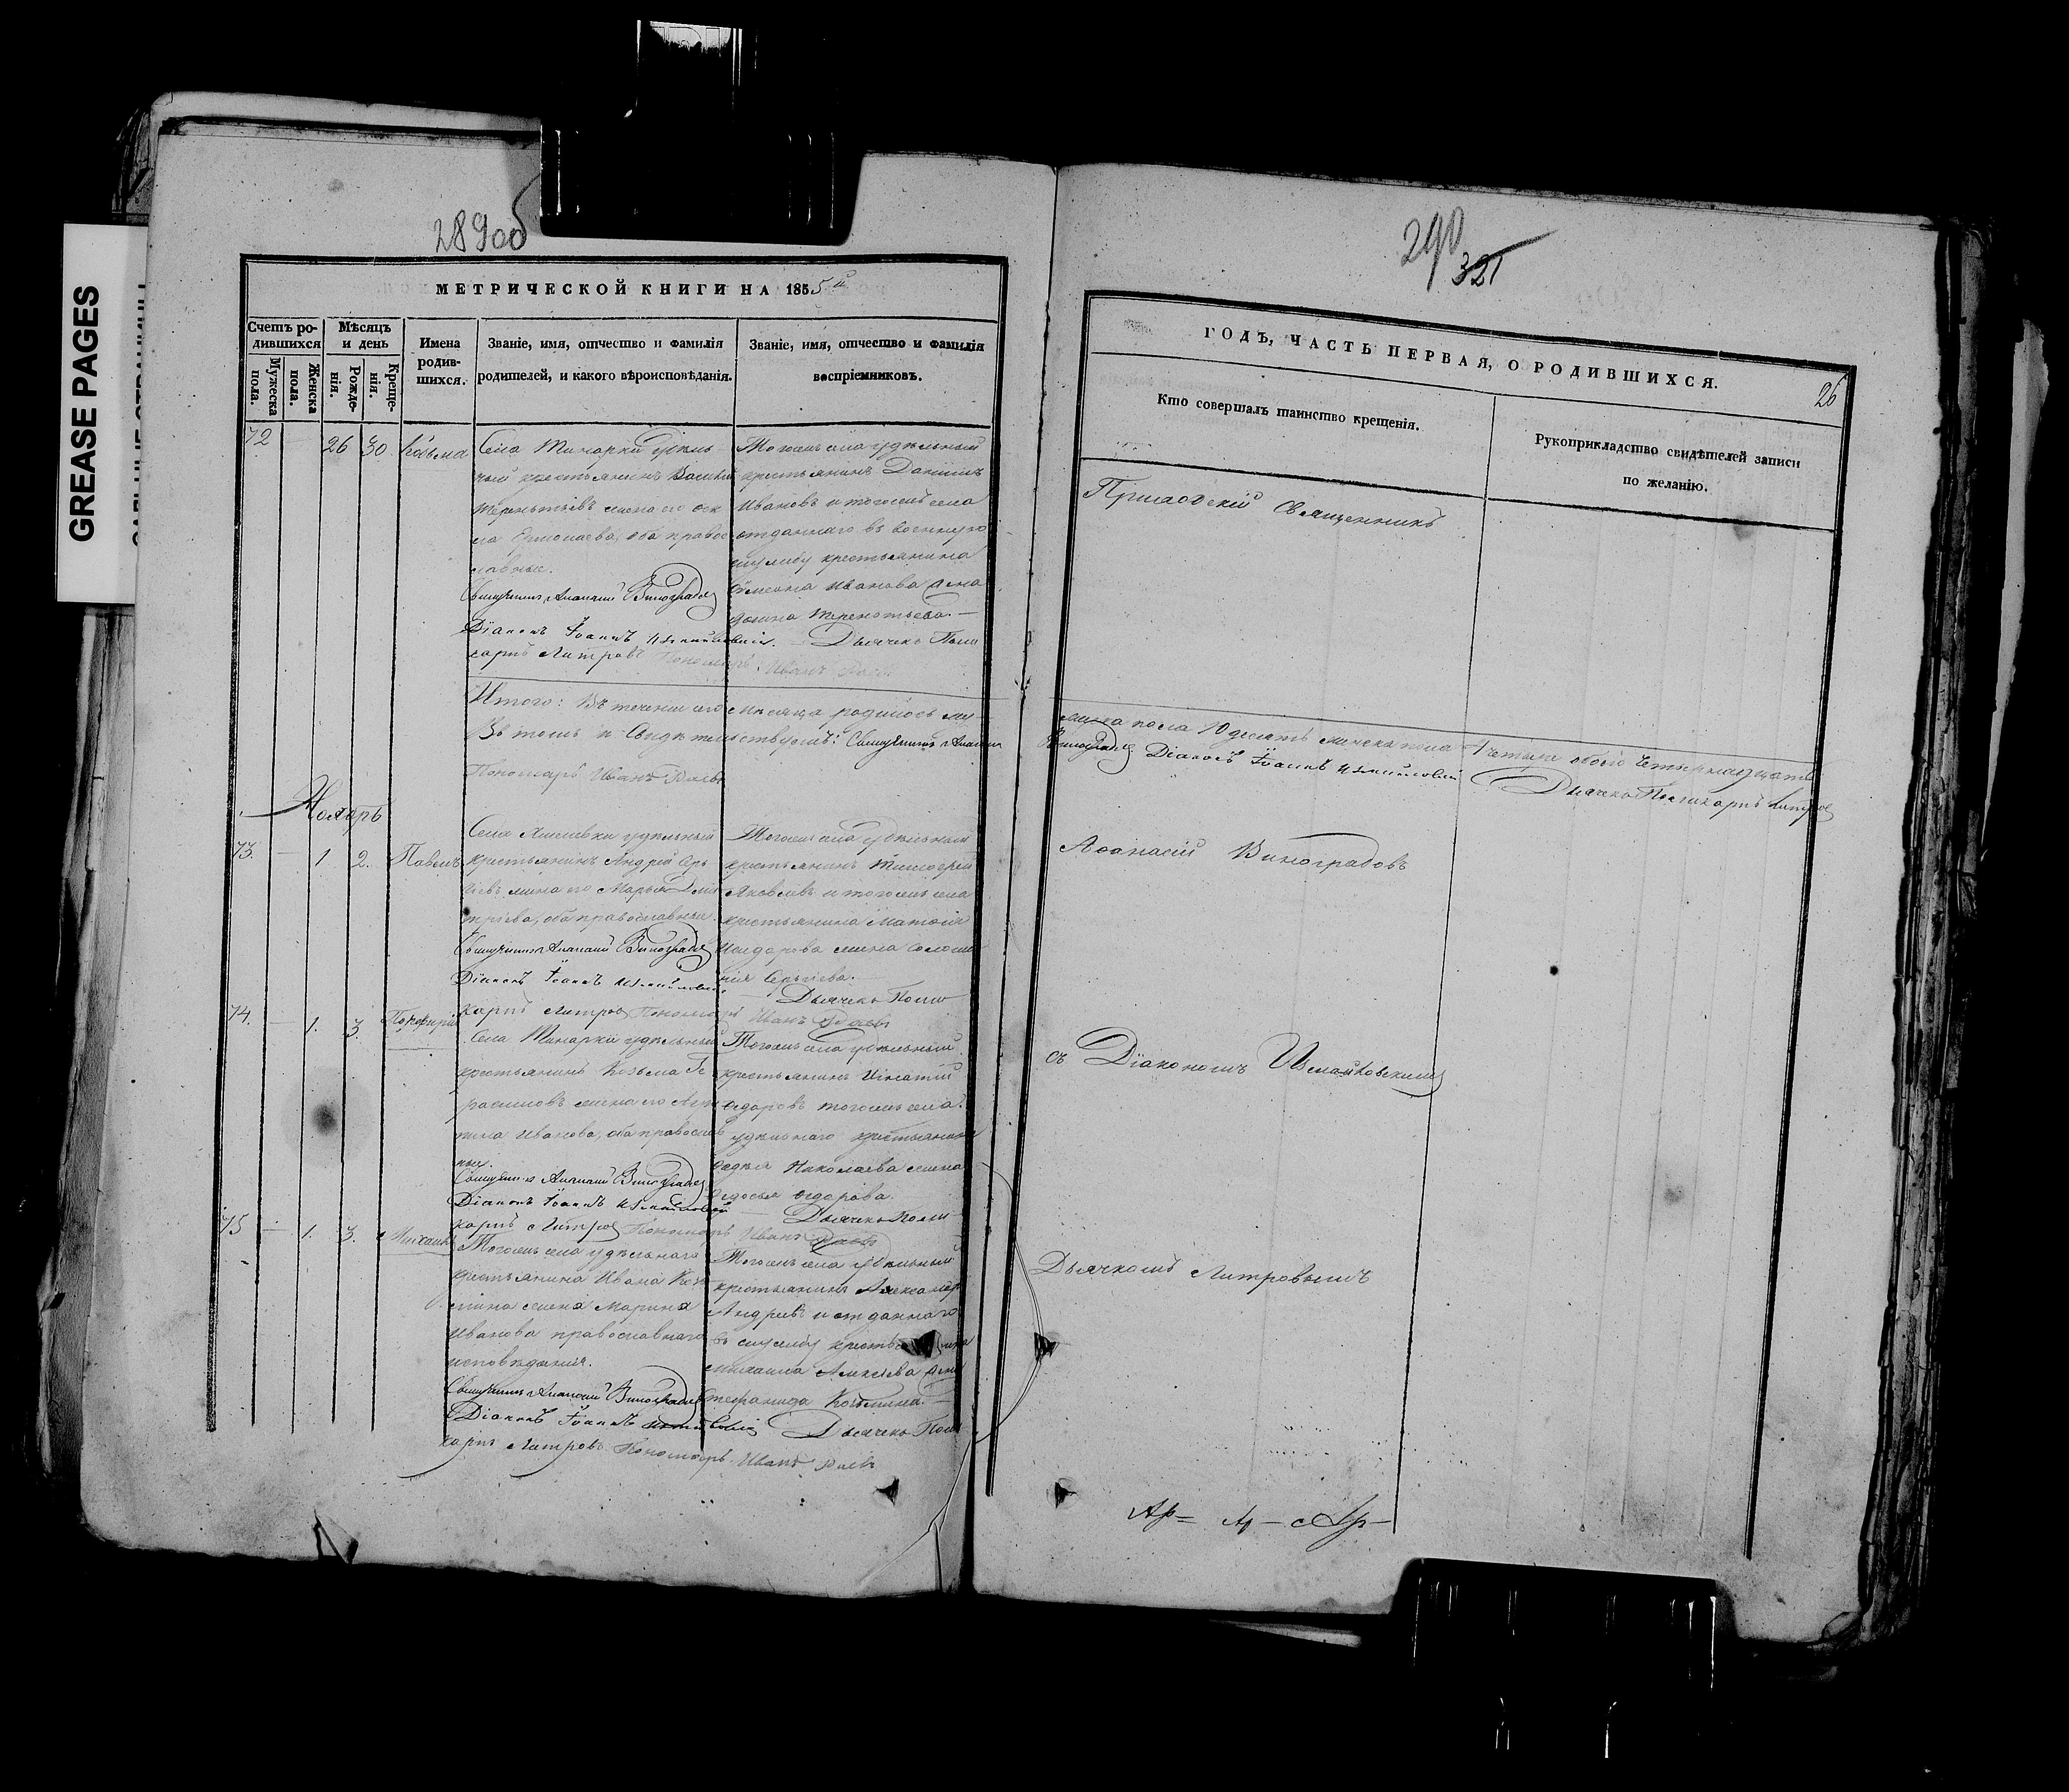 GREASE PAGES
289об
МЕТРИЧЕСКОЙ КНИГИ НА 1855й
Счетъ ро-
дившихся
Мужеска
пола.
Женска
пола.
Мѣсяцъ
и день
Рожде-
нія.
Креще-
нія.
Имена
родив-
шихся.
Званіе, имя, отчество и фамилія
родителей, и какого вѣроисповѣданія.
Званіе, имя, отчество и фамилія
воспріемниковъ.
72 — 26 30 Козьма
Села Тимарки удѣль-
ный крестьянинъ Василій
Терентьевъ жена его Фек
ла Ермолаева, оба право
славные.
Священникъ Афанасій Виноградовъ
Діаконъ Іоаннъ
Тогожъ села удѣльный
крестьянинъ Даніилъ
Ивановъ и тогожъ села
отданнаго въ военную
службу крестьянина
Симеона Иванова жена
Терентьева.—
Дьячекъ Поли
карпъ Литровъ Пономарь Иванъ
Итого: Въ теченіи сего мѣсяца родилось му-
Въ томъ и свидѣтельствуемъ: Священникъ Афанасій
Пономарь Иванъ
Ноябрь
73. — 1 2. Павелъ
Села удѣльный
крестьянинъ Андрей Сер
гіевъ жена его Марья Дми
тріева, оба православные.
Священникъ Афанасій Виноградовъ
Діаконъ Іоаннъ
Тогожъ села удѣльный
крестьянинъ Тимофей
Яковлевъ и тогожъ села
крестьянина Матвѣя
Исидорова жена Соломо
нія Сергіева.—
Дьячекъ Поли
карпъ Литровъ Пономарь Иванъ
74. — 1. 3. Порфирій
Села Тимарки удѣльный
крестьянинъ Козьма Ге
расимовъ жена его Агри
пина Иванова, оба православ
ные.
Священникъ Афанасій Виноградовъ
Діаконъ Іоаннъ
Тогожъ села удѣльный
крестьянинъ Игнатій
Федоровъ тогожъ села
удѣльнаго крестьянина
Николаева жена
Федосья Федорова.
Дьячекъ Поли
карпъ Литровъ Пономарь Иванъ
75 — 1. 3. Михаилъ
Тогожъ села удѣльнаго
крестьянина Ивана Козь
мина жена Марина
Иванова православнаго
исповѣданія.
Священникъ Афанасій Виноградовъ
Діаконъ Іоаннъ
Тогожъ села удѣльный
крестьянинъ Александръ
Андреевъ и отданнаго
въ службу крестьянина
Михаила Алексѣева жена
Стефанида Козьмина.—
Дьячекъ Поли
карпъ Литровъ Пономарь Иванъ
290
321
ГОДЪ, ЧАСТЬ ПЕРВАЯ, О РОДИВШИХСЯ.
26
Кто совершалъ таинство крещенія.
Рукоприкладство свидѣтелей записи
по желанію.
Приходскій Священникъ
жеска пола 10 десять женска пола 4 четыре обоего четырнадцать
Виноградовъ Діаконъ Іоаннъ
Дьячекъ Поликарпъ Литровъ
Аѳанасій Виноградовъ
съ Діакономъ
Дьячкомъ Литровымъ